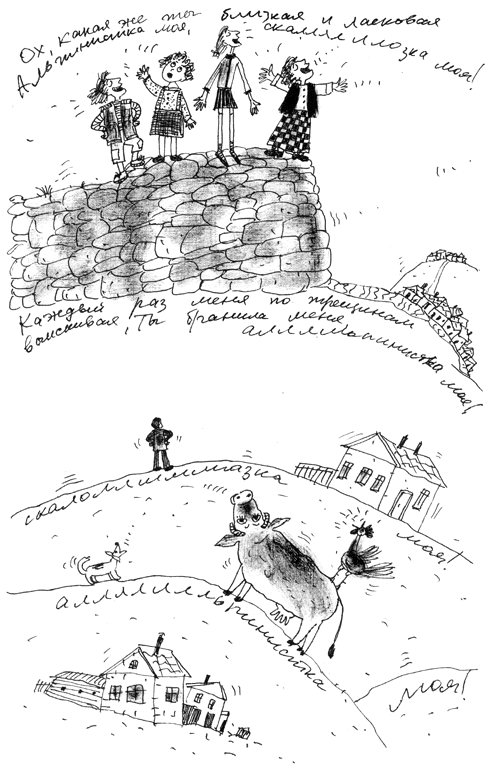 Ох, какая же ты близкая и ласковая
Альпинистка моя, скалллллозка моя!
Каждый раз меня по трещинам
выискивая, Ты бранила меня
аллллпинистка моя!
скалолллллллазка
моя!
аллллльпинистка
моя!